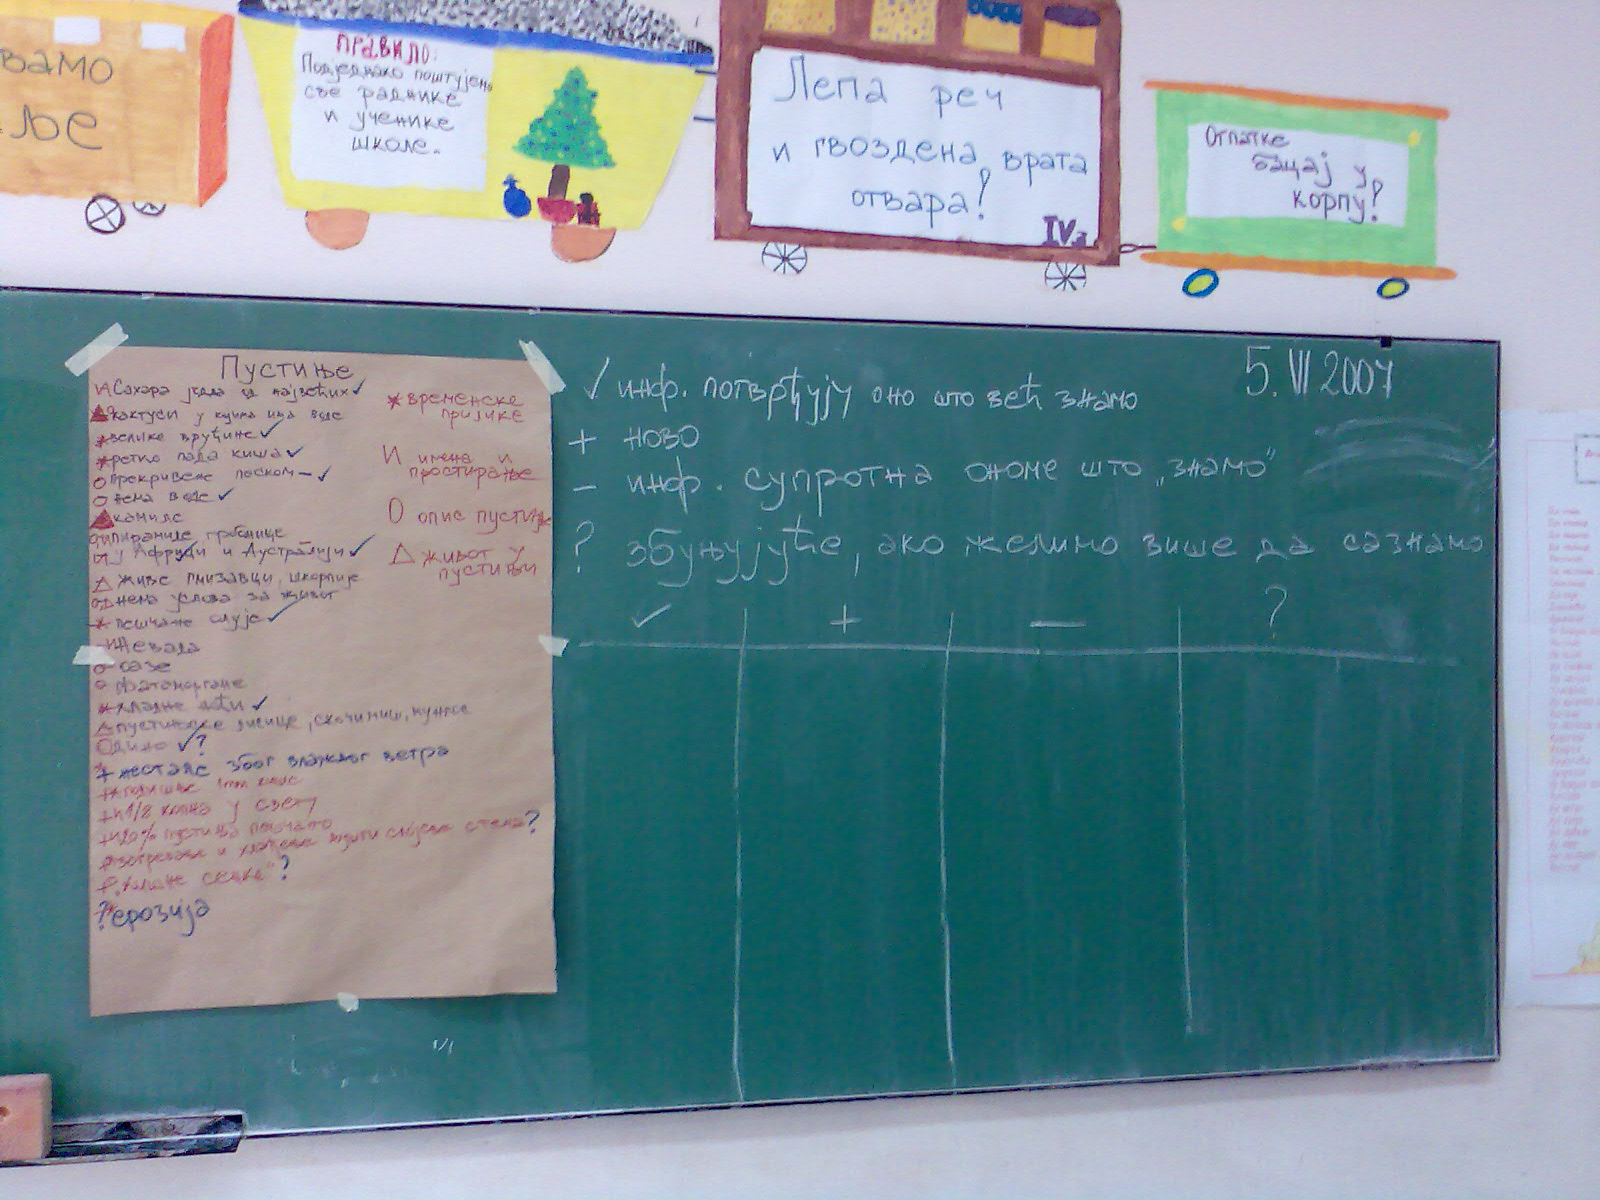 вамо
ље
ПРАВИЛО:
Подједнако поштујемо
све раднике
и ученике
школе.
Лепа реч
и гвоздена врата
отвара!
IV2
Отпатке
бацај у
корпу!
Пустиње
И Сахара једна од највећих ✓
кактуси у којима има воде
* велике врућине ✓
* ретко пада киша ✓
О прекривене песком – ✓
О нема воде ✓
камиле
пирамиде гробнице
у Африци и Аустралији ✓
△ живе гмизавци, шкорпије
нема услова за живот
* пешчане олује ✓
Невада
О оазе
О фатаморгане
* хладне ноћи ✓
△ пустињске лисице,
✓?
+ нестале због влажног ветра
+* годишње 1mm кише
+И 1/8 копна у свету
+И 20% пустиња
загревање и хлађење слојева стена?
?
?* ерозија
* временске
прилике
И имена и
простирање
О опис пустиње
△ живот у
пустињи
5. VI 2007
✓ инф. потврђују оно што већ знамо
+ ново
– инф. супротна ономе што „знамо"
? збуњујуће, ако желимо више да сазнамо
✓ + — ?